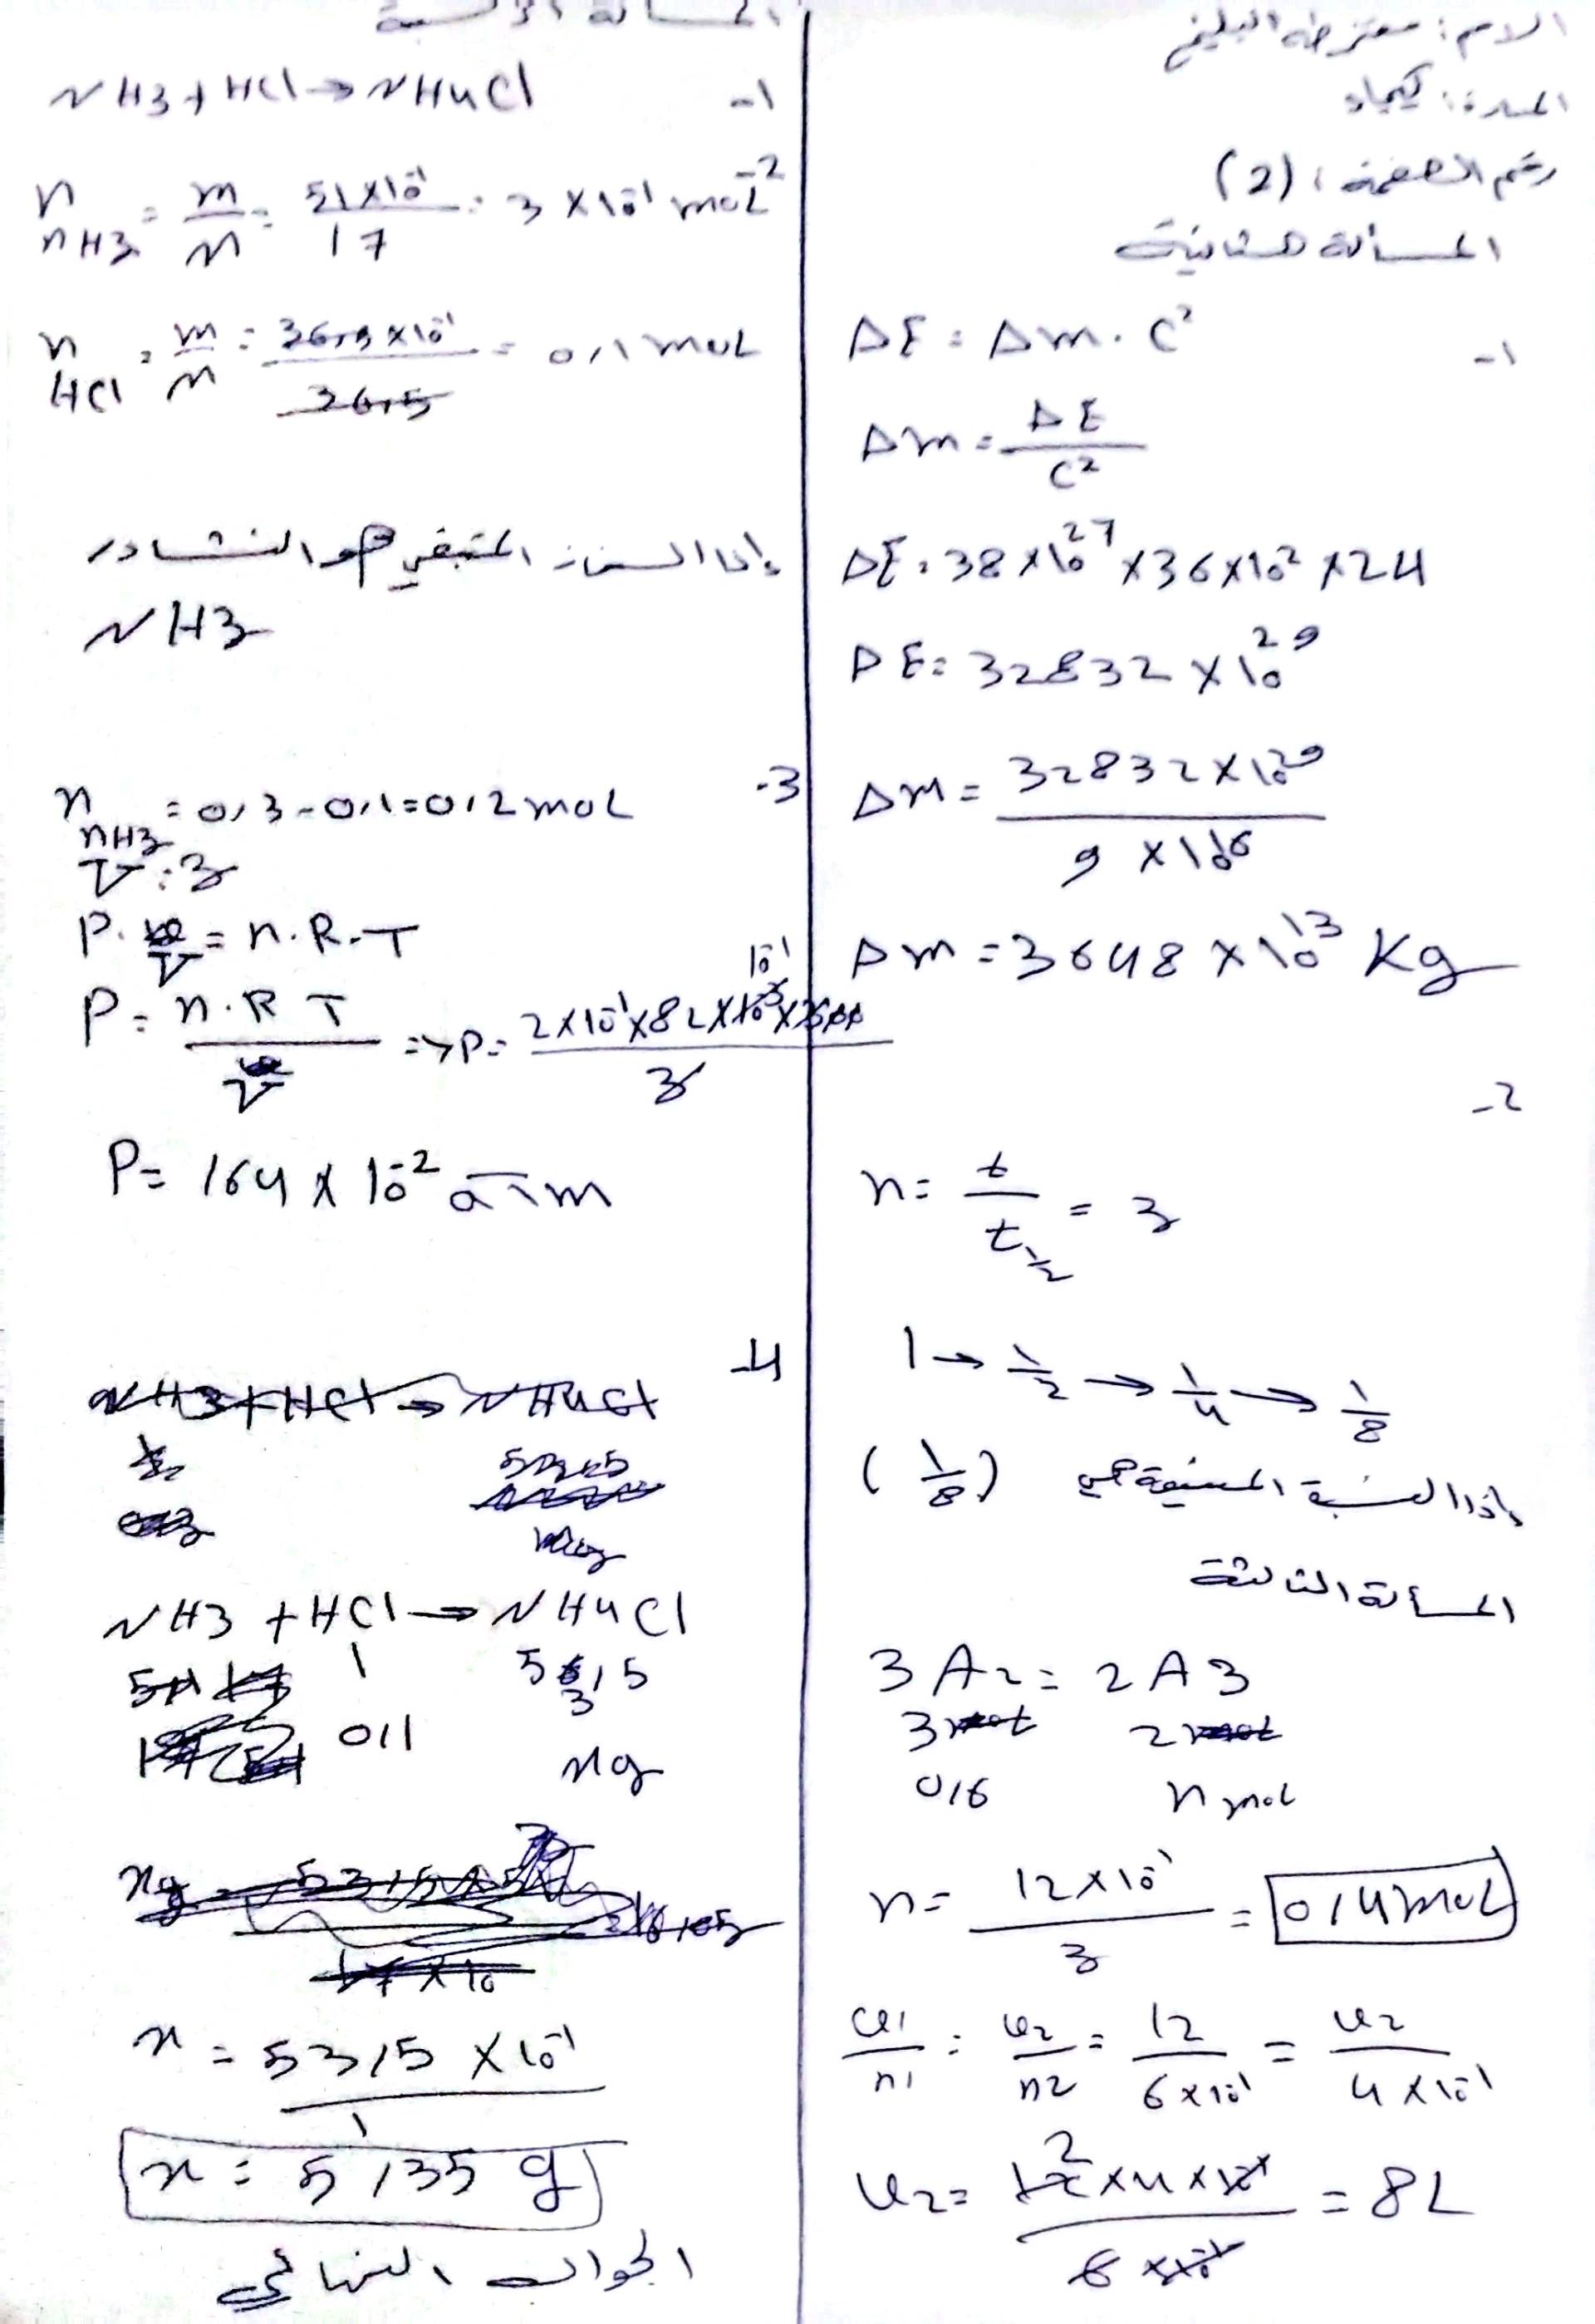 الاسم: معتز طه البليغ
المادة: كيمياء
رقم الصفحة: (2)
المسألة الثانية
1- ΔE = Δm . C²
Δm = ΔE / C²
ΔE = 38 × 10²⁷ × 36 × 10² × 24
ΔE = 32832 × 10²⁹
Δm = 32832 × 10²⁹ / 9 × 10¹⁶
Δm = 3648 × 10¹³ Kg
2-
n = t / t½ = 3
1 → 1/2 → 1/4 → 1/8
إذا النسبة المتبقية هي (1/8)
المسألة الثالثة
3A2 = 2A3
3 mol 2 mol
0,6 n mol
n = 12 × 10⁻¹ / 3 = 0,4 mol
v1 / n1 = v2 / n2 = 12 / 6 × 10⁻¹ = v2 / 4 × 10⁻¹
v2 = 12 × 4 × 10⁻¹ / 6 × 10⁻¹ = 8L
1- NH3 + HCl → NH4Cl
2- n NH3 = m / M = 51 × 10⁻¹ / 17 = 3 × 10⁻¹ mol
n HCl = m / M = 36,5 × 10⁻¹ / 36,5 = 0,1 mol
إذا الغاز المتبقي هو النشادر
NH3
3- n NH3 = 0,3 - 0,1 = 0,2 mol
V = 3
P . V = n . R . T
P = n . R T / V => P = 2 × 10⁻¹ × 82 × 10⁻³ × 300 / 3
P = 164 × 10⁻² atm
4- NH3 + HCl → NH4Cl
NH3 + HCl → NH4Cl
1 53,5
0,1 xg
x = 53,5 × 10⁻¹ / 1
x = 5,35 g
الجواب النهائي